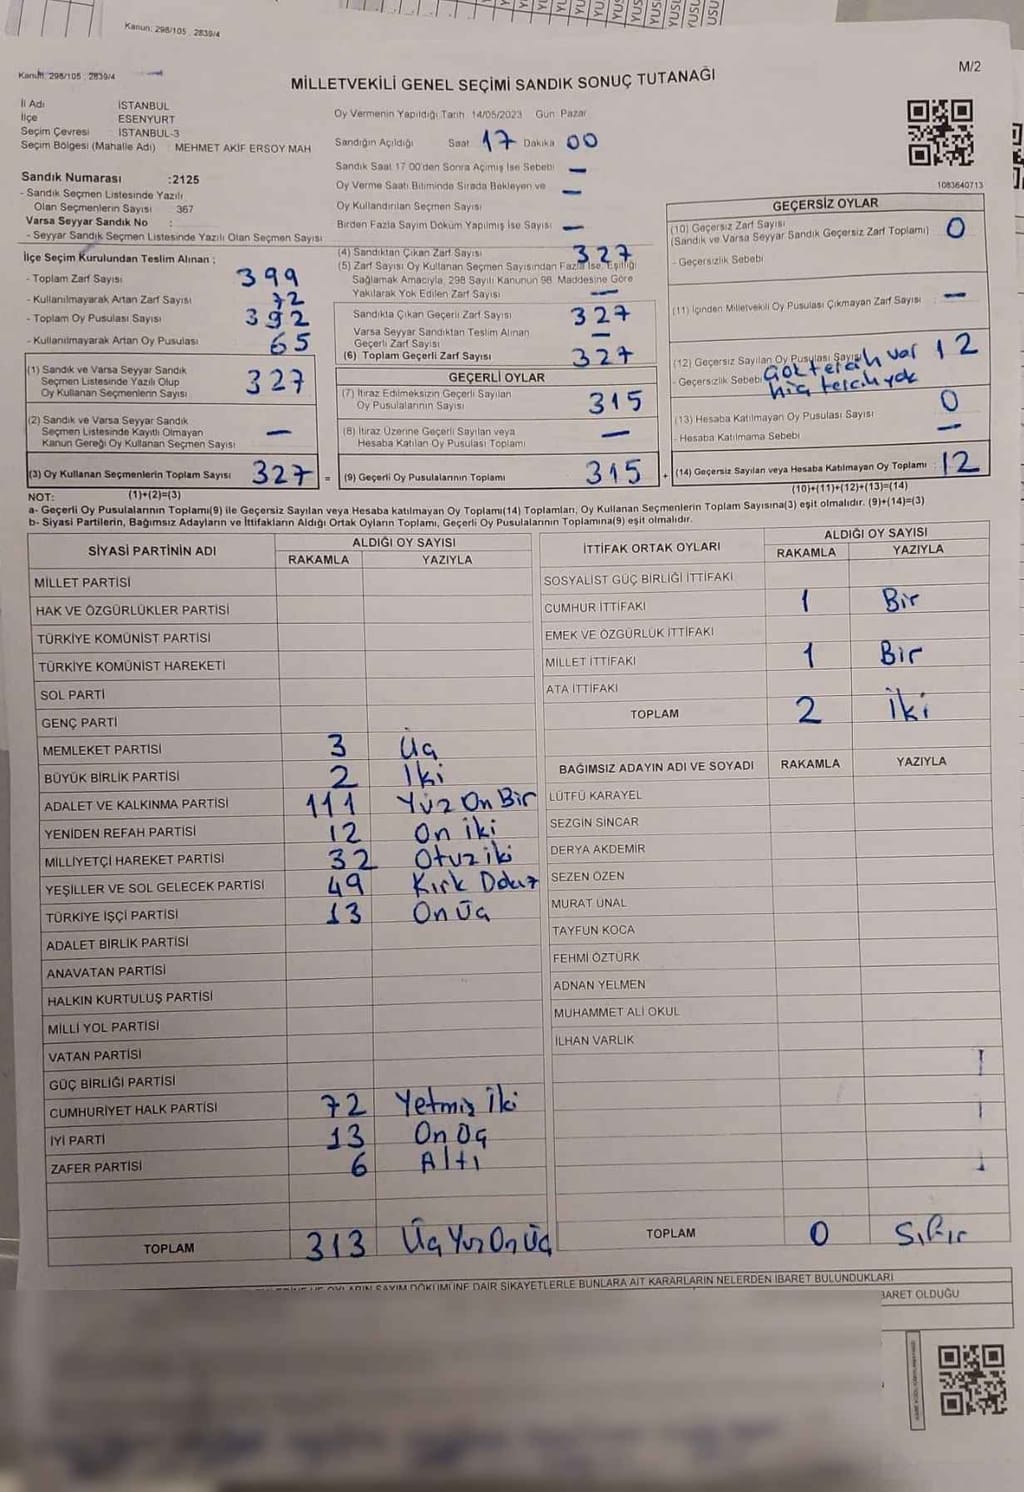 Kanun: 298/105 , 2839/4
Kanun: 298/105 , 2839/4
M/2
MİLLETVEKİLİ GENEL SEÇİMİ SANDIK SONUÇ TUTANAĞI
İl Adı İSTANBUL
İlçe ESENYURT
Seçim Çevresi İSTANBUL-3
Seçim Bölgesi (Mahalle Adı) : MEHMET AKİF ERSOY MAH
Sandık Numarası :2125
- Sandık Seçmen Listesinde Yazılı
Olan Seçmenlerin Sayısı 367
Varsa Seyyar Sandık No :
- Seyyar Sandık Seçmen Listesinde Yazılı Olan Seçmen Sayısı
Oy Vermenin Yapıldığı Tarih 14/05/2023 Gün Pazar
Sandığın Açıldığı Saat 17 Dakika 00
Sandık Saat 17 00'den Sonra Açımış İse Sebebi —
Oy Verme Saati Bitiminde Sırada Bekleyen ve
Oy Kullandırılan Seçmen Sayısı —
Birden Fazla Sayım Döküm Yapılmış İse Sayısı —
1083640713
İlçe Seçim Kurulundan Teslim Alınan ;
- Toplam Zarf Sayısı 399
- Kullanılmayarak Artan Zarf Sayısı 72
- Toplam Oy Pusulası Sayısı 392
- Kullanılmayarak Artan Oy Pusulası 65
(1) Sandık ve Varsa Seyyar Sandık
Seçmen Listesinde Yazılı Olup
Oy Kullanan Seçmenlerin Sayısı 327
(2) Sandık ve Varsa Seyyar Sandık
Seçmen Listesinde Kayıtlı Olmayan
Kanun Gereği Oy Kullanan Seçmen Sayısı —
(3) Oy Kullanan Seçmenlerin Toplam Sayısı 327 =
(4) Sandıktan Çıkan Zarf Sayısı 327
(5) Zarf Sayısı Oy Kullanan Seçmen Sayısından Fazla İse, Eşitliği
Sağlamak Amacıyla, 298 Sayılı Kanunun 98. Maddesine Göre
Yakılarak Yok Edilen Zarf Sayısı —
Sandıkta Çıkan Geçerli Zarf Sayısı 327
Varsa Seyyar Sandıktan Teslim Alınan
Geçerli Zarf Sayısı —
(6) Toplam Geçerli Zarf Sayısı 327
GEÇERLİ OYLAR
(7) İtiraz Edilmeksizin Geçerli Sayılan
Oy Pusulalarının Sayısı 315
(8) İtiraz Üzerine Geçerli Sayılan veya
Hesaba Katılan Oy Pusulası Toplamı —
(9) Geçerli Oy Pusulalarının Toplamı 315 +
GEÇERSİZ OYLAR
(10) Geçersiz Zarf Sayısı
(Sandık ve Varsa Seyyar Sandık Geçersiz Zarf Toplamı) 0
- Geçersizlik Sebebi
(11) İçinden Milletvekili Oy Pusulası Çıkmayan Zarf Sayısı —
(12) Geçersiz Sayılan Oy Pusulası Sayısı 12
- Geçersizlik Sebebi Çok tercih var
hiç tercih yok
(13) Hesaba Katılmayan Oy Pusulası Sayısı 0
- Hesaba Katılmama Sebebi —
(14) Geçersiz Sayılan veya Hesaba Katılmayan Oy Toplamı : 12
NOT: (1)+(2)=(3)
(10)+(11)+(12)+(13)=(14)
a- Geçerli Oy Pusulalarının Toplamı(9) ile Geçersiz Sayılan veya Hesaba katılmayan Oy Toplamı(14) Toplamları, Oy Kullanan Seçmenlerin Toplam Sayısına(3) eşit olmalıdır. (9)+(14)=(3)
b- Siyasi Partilerin, Bağımsız Adayların ve İttifakların Aldığı Ortak Oyların Toplamı, Geçerli Oy Pusulalarının Toplamına(9) eşit olmalıdır.
SİYASİ PARTİNİN ADI ALDIĞI OY SAYISI
RAKAMLA YAZIYLA
MİLLET PARTİSİ
HAK VE ÖZGÜRLÜKLER PARTİSİ
TÜRKİYE KOMÜNİST PARTİSİ
TÜRKİYE KOMÜNİST HAREKETİ
SOL PARTİ
GENÇ PARTİ
MEMLEKET PARTİSİ 3 Üç
BÜYÜK BİRLİK PARTİSİ 2 İki
ADALET VE KALKINMA PARTİSİ 111 Yüz On Bir
YENİDEN REFAH PARTİSİ 12 On iki
MİLLİYETÇİ HAREKET PARTİSİ 32 Otuz iki
YEŞİLLER VE SOL GELECEK PARTİSİ 49 Kırk Dokuz
TÜRKİYE İŞÇİ PARTİSİ 13 On Üç
ADALET BİRLİK PARTİSİ
ANAVATAN PARTİSİ
HALKIN KURTULUŞ PARTİSİ
MİLLİ YOL PARTİSİ
VATAN PARTİSİ
GÜÇ BİRLİĞİ PARTİSİ
CUMHURİYET HALK PARTİSİ 72 Yetmiş İki
İYİ PARTİ 13 On Üç
ZAFER PARTİSİ 6 Altı
TOPLAM 313 Üç Yüz On Üç
İTTİFAK ORTAK OYLARI ALDIĞI OY SAYISI
RAKAMLA YAZIYLA
SOSYALİST GÜÇ BİRLİĞİ İTTİFAKI
CUMHUR İTTİFAKI 1 Bir
EMEK VE ÖZGÜRLÜK İTTİFAKI
MİLLET İTTİFAKI 1 Bir
ATA İTTİFAKI
TOPLAM 2 İki
BAĞIMSIZ ADAYIN ADI VE SOYADI RAKAMLA YAZIYLA
LÜTFÜ KARAYEL
SEZGİN SİNCAR
DERYA AKDEMİR
SEZEN ÖZEN
MURAT ÜNAL
TAYFUN KOCA
FEHMİ ÖZTÜRK
ADNAN YELMEN
MUHAMMET ALİ OKUL
İLHAN VARLIK
TOPLAM 0 Sıfır
OYLARIN SAYIM DÖKÜMÜNE DAİR ŞİKAYETLERLE BUNLARA AİT KARARLARIN NELERDEN İBARET BULUNDUKLARI
BARET OLDUĞU